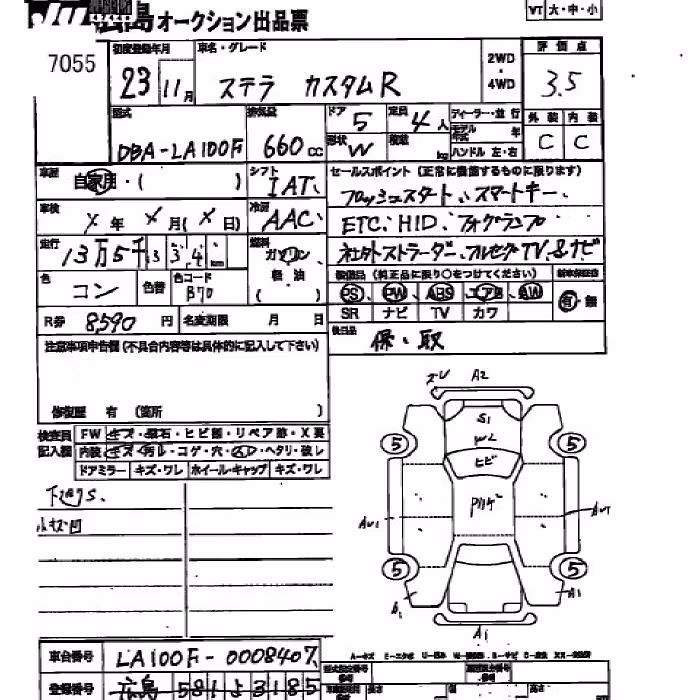 広島オークション出品票
VT 大・中・小
7055
初度登録年月 車名・グレード 2WD・4WD 評価点
23 11月 ステラ カスタムR 3.5
型式 排気量 ドア 定員 ディーラー・並行 外装 内装
DBA-LA100F 660cc 5 4人 モデル年式 年 C C
形状 W 積載 kg ハンドル 左・右
車歴 自家用・( ) シフト IAT セールスポイント(正常に機能するものに限ります)
プッシュスタート、スマートキー、
車検 X年 X月(X日) 冷房 AAC ETC、HID、フォグランプ
走行 13万5千 km 燃料 ガソリン 社外ストラーダー、フルセグTV&ナビ
軽油
( )
色 コン 色替 色コード B70
装備品(純正品に限り○をつけてください) 新車保証書
PS PW ABS エアB AW 有・無
SR ナビ TV カワ
R券 8590円 名変期限 月 日
後日品 保・取
注意事項申告欄(不具合内容等は具体的に記入して下さい)
修復歴 有 (箇所 )
検査員記入欄 FW キズ・飛石・ヒビ割・リペア跡・X要
内装 キズ・汚れ・コゲ・穴・ヘタリ・破レ
ドアミラー キズ・ワレ ホイール・キャップ キズ・ワレ
下回りS、
小キズ凹
ズレ A2
S1
W2
ヒビ
5 5
5 5
A1 A1
A1
車台番号 LA100F-0008407
登録番号 広島 581 よ 3185